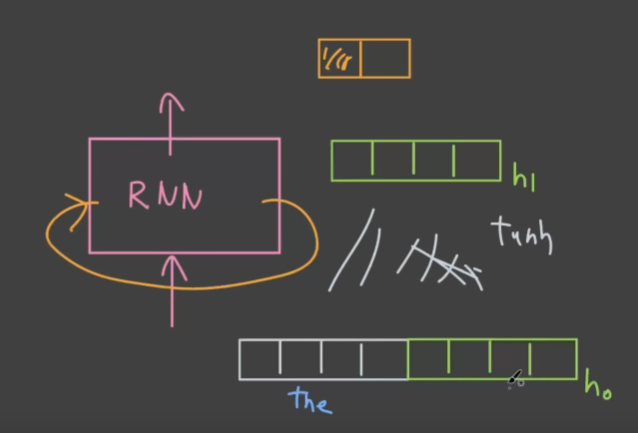 RNN
h1
tanh
the
h0